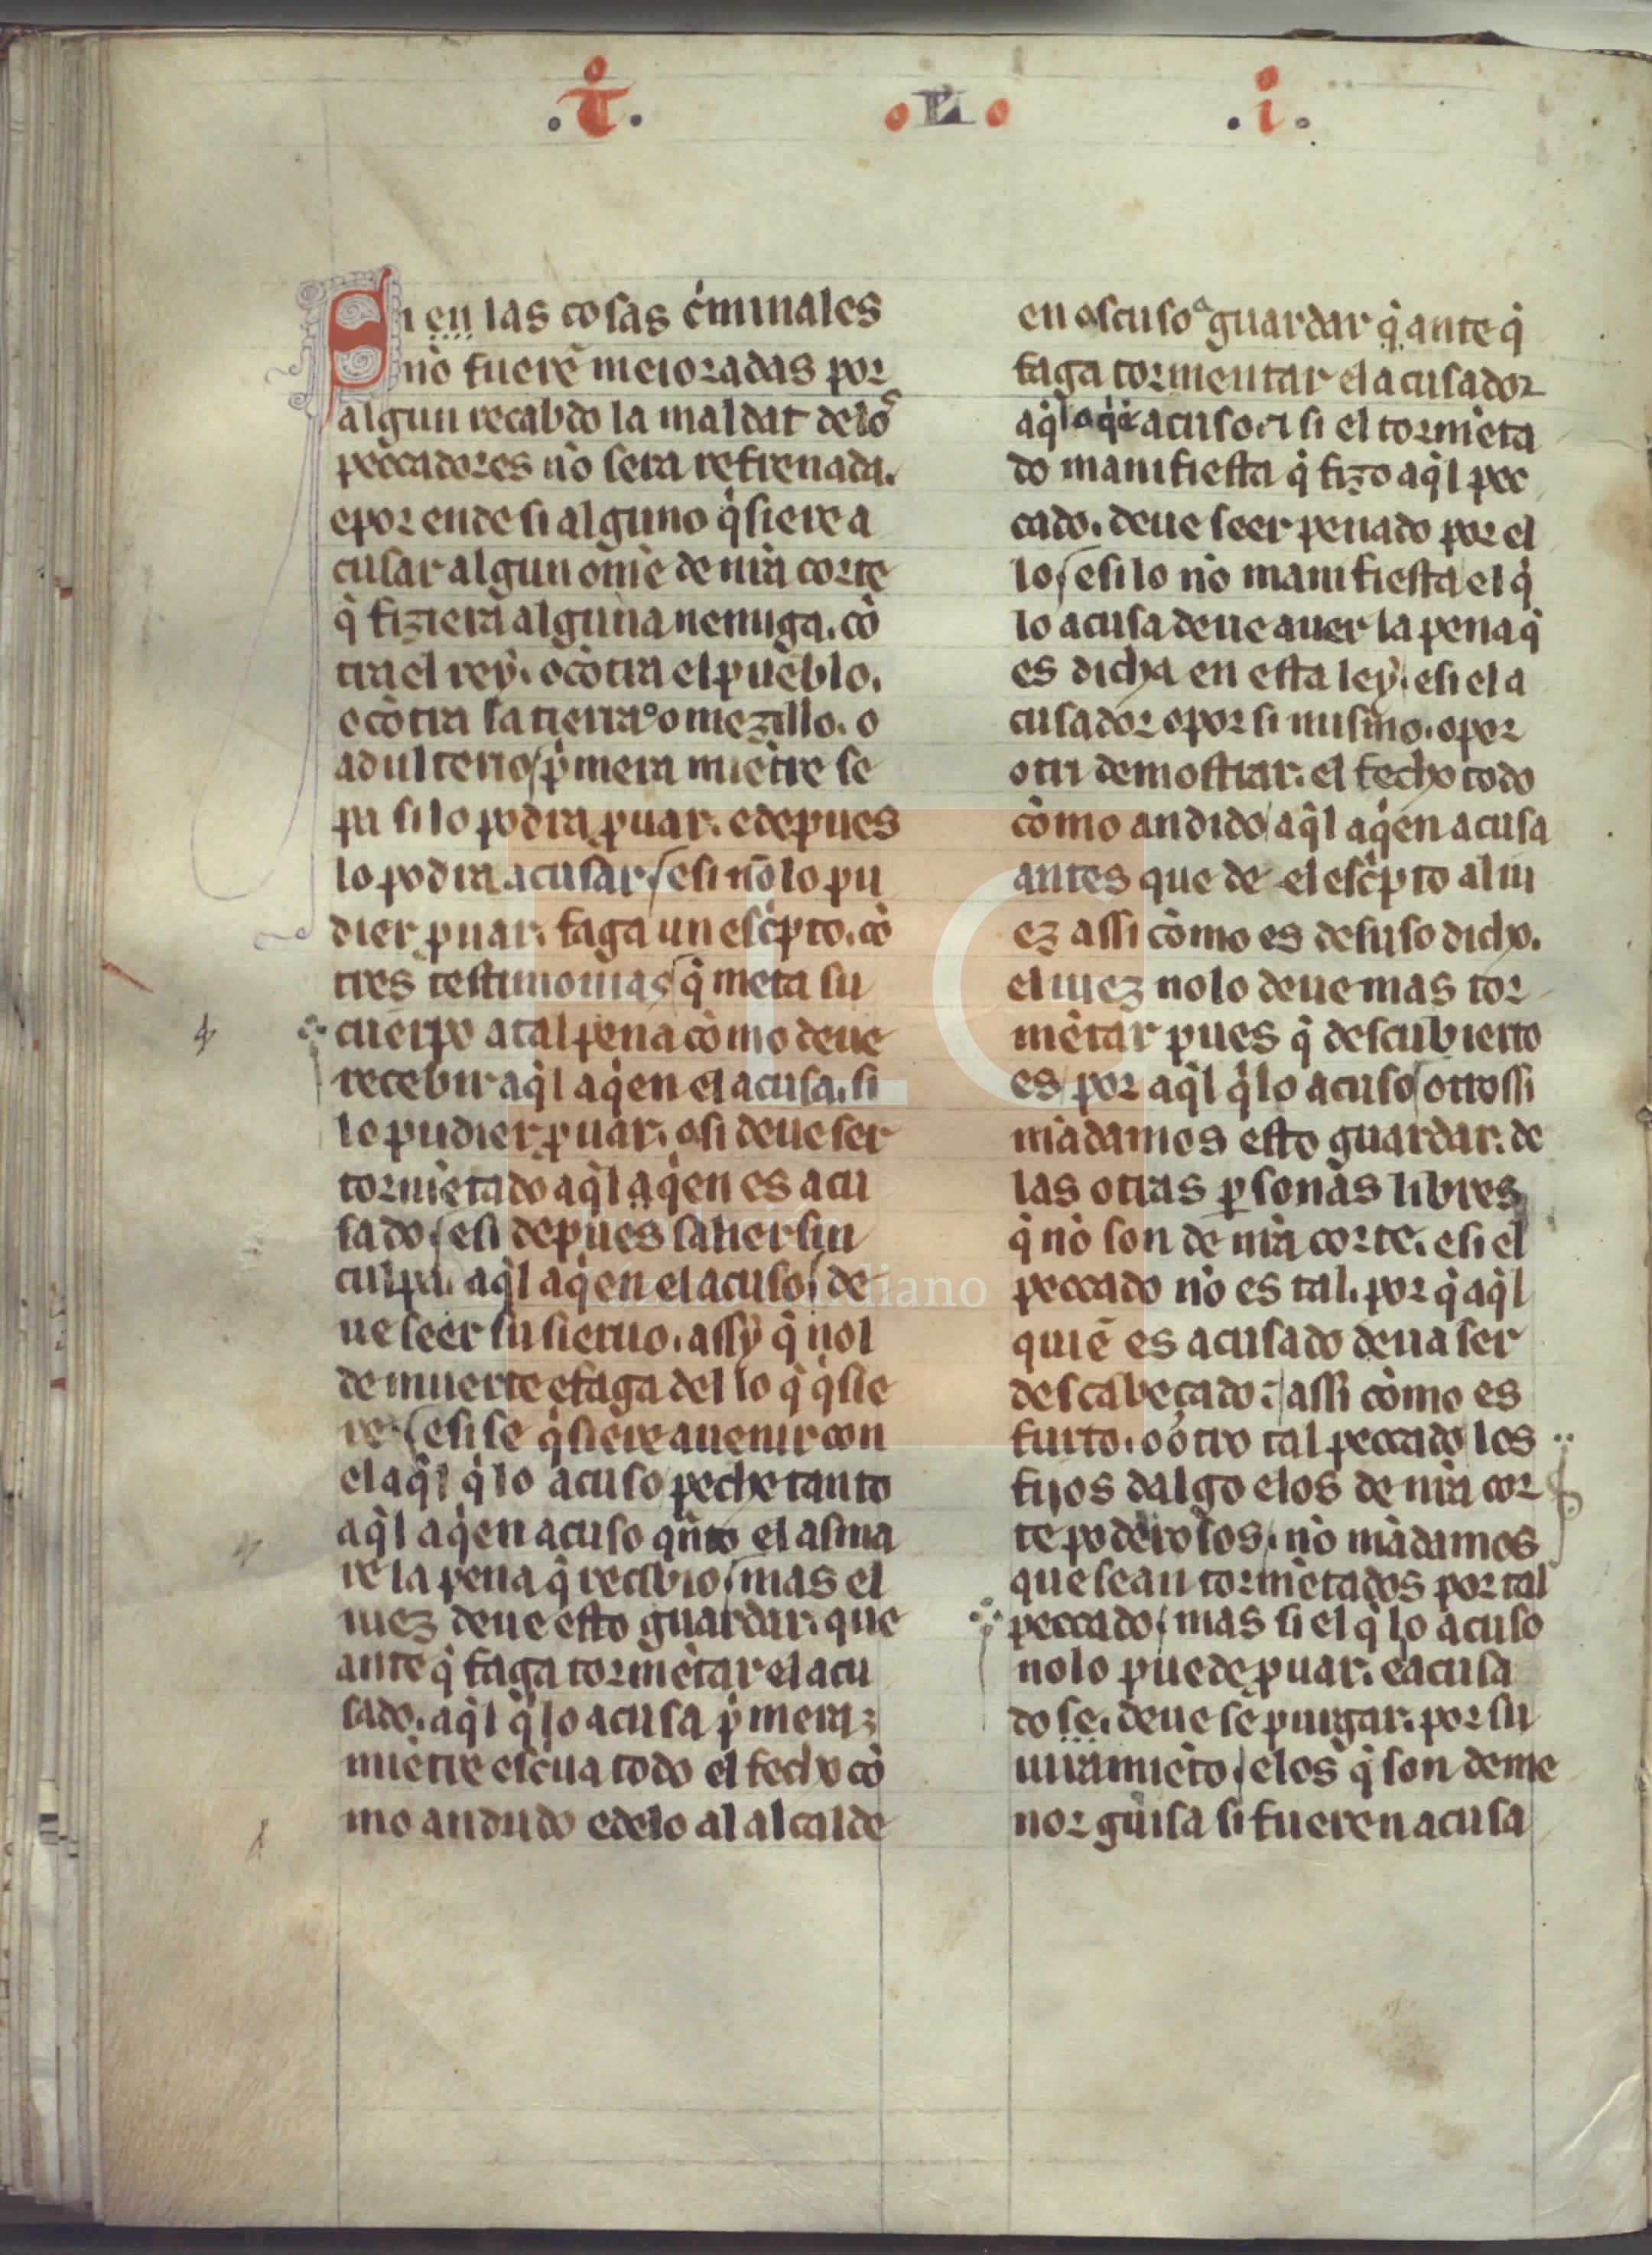 .t̊. .L. .i.
Si en las cosas c'minales
nō fuerē meioradas por
algun recabdo la maldat delos
peccadores nō sera refrenada.
e por ende si alguno q̇siere a
cusar algun omē de nr̄a corte
q̄ fiziera alguna nemiga. cō
tra el rey. o cōtra el pueblo.
o cōtra sa tierra o omezillo. o
adulterio p'mera miētre se
pa si lo podra puar. e depues
lo podra acusar e si nō lo pu
dier puar. faga un esc'pto. cō
tres testimonias q̄ meta su
cuerpo a tal pena cōmo deue
recebir aq̄l aq̇en el acusa. si
lo pudier puar. o si deue ser
tormētado aq̄l aq̇en es acu
sado e si depues salier sin
culpa. aq̄l aq̇en el acuso de
ue seer su sieruo. assy q̄ nol
de muerte e faga del lo q̄ q̇sie
re e si se q̇siere auenir con
el aq̄l q̄ lo acuso peche tanto
aq̄l aq̇en acuso q̄nto el asma
re la pena q̄ recibio mas el
iuez deue esto guardar. que
ante q̄ faga tormētar el acu
sado. aq̄l q̄ lo acusa p'mera
miētre escua todo el fecho cō
mo andudo e delo al alcalde
en ascuso a guardar q̄ ante q̄
faga tormentar el acusador
aq̄l aq̇e acuso si el tormēta
do manifiesta q̄ fizo aq̄l pec
cado. deue seer penado por el
lo e si lo nō manifiesta el q̄
lo acusa deue auer la pena q̄
es dicha en esta ley. e si el a
cusador o por si mismo. o por
otri demostrar. el fecho todo
cōmo andido aq̄l aq̇en acusa
antes que de el esc'pto al iu
ez assi cōmo es desuso dicho.
el iuez no lo deue mas tor
mētar pues q̄ descubierto
es por aq̄l q̄ lo acuso otrossi
mādamos esto guardar. de
las otras psonas libres
q̄ nō son de nr̄a corte. e si el
peccado nō es tal. por q̄ aq̄l
quiē es acusado deua ser
descabeçado assi cōmo es
furto. o otro tal peccado los
fijos dalgo e los de nr̄a cor
te poderosos. nō mādamos
que sean tormētados por tal
peccado mas si el q̄ lo acuso
no lo puede puar. e acusa
do se. deue se purgar. por su
iuramiēto e los q̄ son de me
nor guisa si fueren acusa